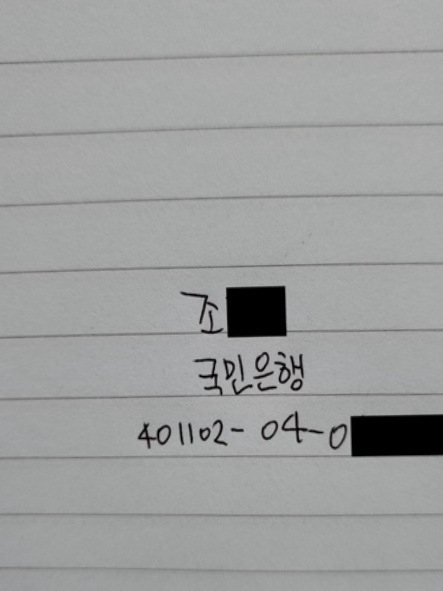 조
국민은행
401102-04-0